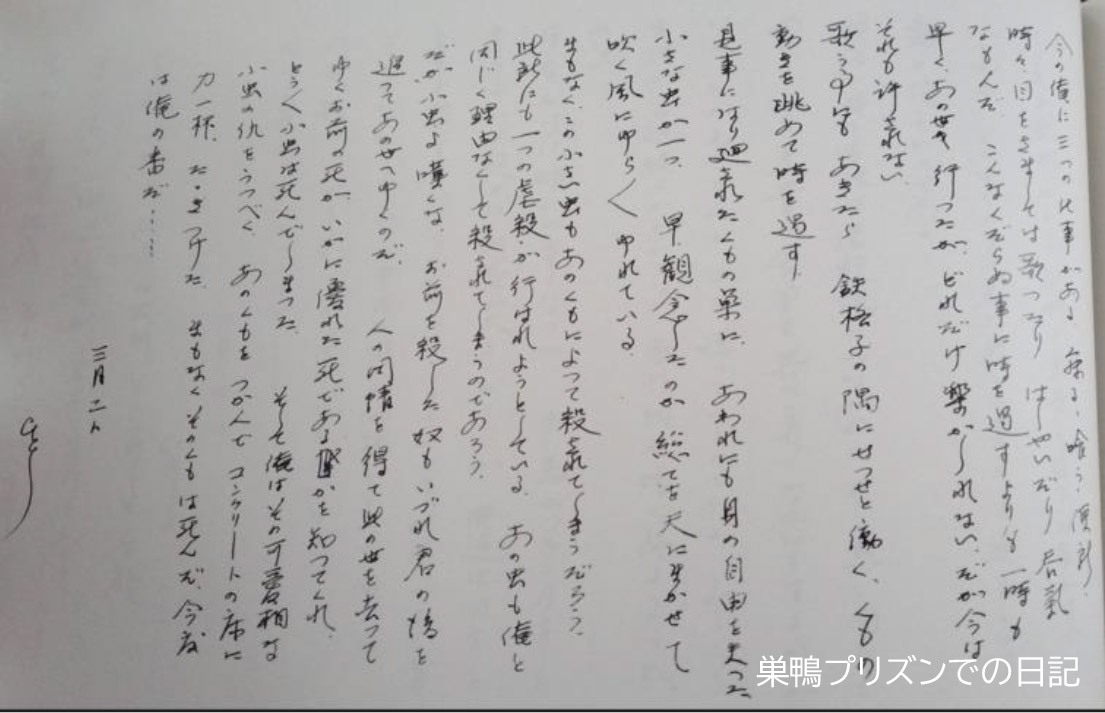 今の僕に三つの仕事がある 寐る、喰う、
時々、目をさましては歌つたり はしやいだり 呑氣
なもんだ こんなくだらぬ事に時を過すよりも 一時も
早くあの世へ 行つた方が、どれだけ樂かしれない、だが今は
それも許されない
歌う事にも あきたら 鉄格子の隅にせつせと働く、くもの
動きを眺めて時を過す
見事にはり廻されたくもの巣に、 あわれにも身の自由を失つた
小さな虫が一つ 早、觀念したのか 総てを天にまかせて
吹く風にゆら〱 ゆれている
まもなく、この小さい虫もあのくもによつて殺されてしまうだろう、
此所にも一つの虐殺が行はれようとしている あの虫も俺と
同じく理由なくして殺されてしまうのであろう、
だが小虫よ嘆くな、お前を殺した奴も いづれ君の後を
追つてあの世へゆくのだ、 人の同情を得て此の世を去つて
ゆくお前の死が いかに優れた死であるかを知つてくれ、
とう〱小虫は死んでしまつた そして俺はその可愛相な
小虫の仇をうつべく あのくもを つかんで コンクリートの床に
力一杯、たゝきつけた まもなくそのくもは死んだ、今度
は俺の番だ……
三月二十
巣鴨プリズンでの日記